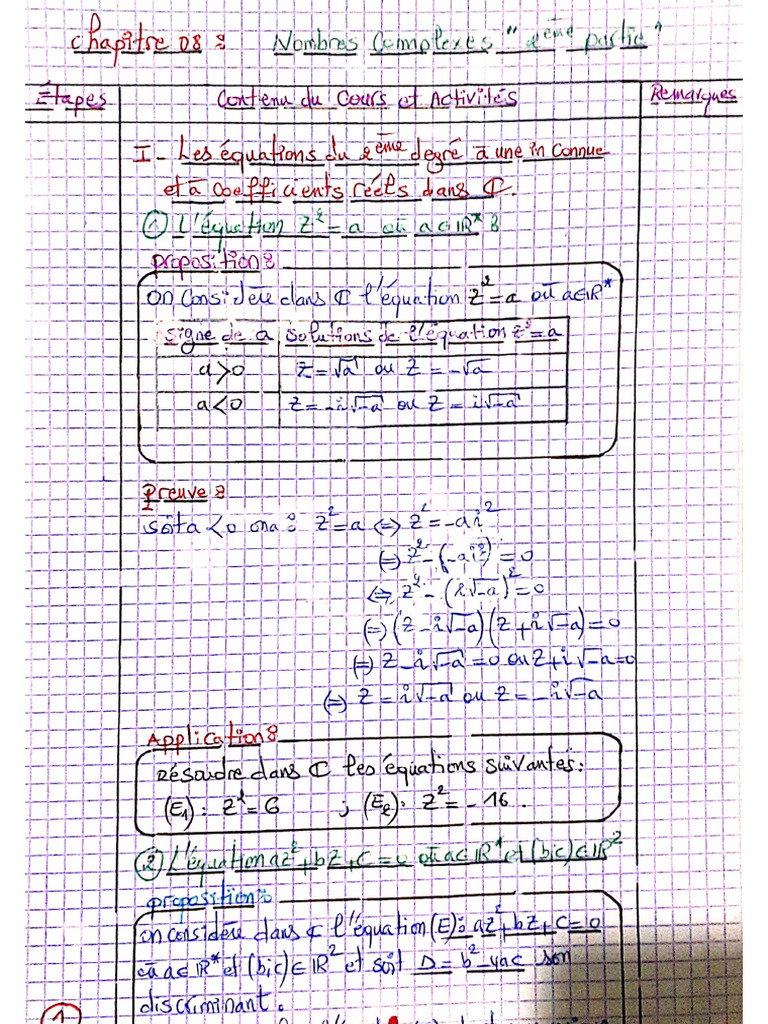 Chapitre 08 : Nombres Complexes "2ème partie"
Étapes Contenu du Cours et Activités Remarques
I - Les équations du 2ème degré à une inconnue
et à coefficients réels dans ℂ.
① L'équation z² = a où a∈ℝ* :
proposition :
on considère dans ℂ l'équation z² = a où a∈ℝ*
signe de a solutions de l'équation z² = a
a > 0 z = √a ou z = -√a
a < 0 z = -i√-a ou z = i√-a
Preuve :
soit a < 0 on a : z² = a ⟺ z² = -ai²
⟺ z² - (-ai²) = 0
⟺ z² - (i√-a)² = 0
⟺ (z - i√-a)(z + i√-a) = 0
⟺ z - i√-a = 0 ou z + i√-a = 0
⟺ z = i√-a ou z = -i√-a
Application :
Résoudre dans ℂ les équations suivantes :
(E₁) : z² = 6 ; (E₂) : z² = -16 .
② L'équation az² + bz + c = 0 où a∈ℝ* et (b;c)∈ℝ²
proposition :
on considère dans ℂ l'équation (E) : az² + bz + c = 0
où a∈ℝ* et (b;c)∈ℝ² et soit Δ = b² - 4ac son
discriminant .
1